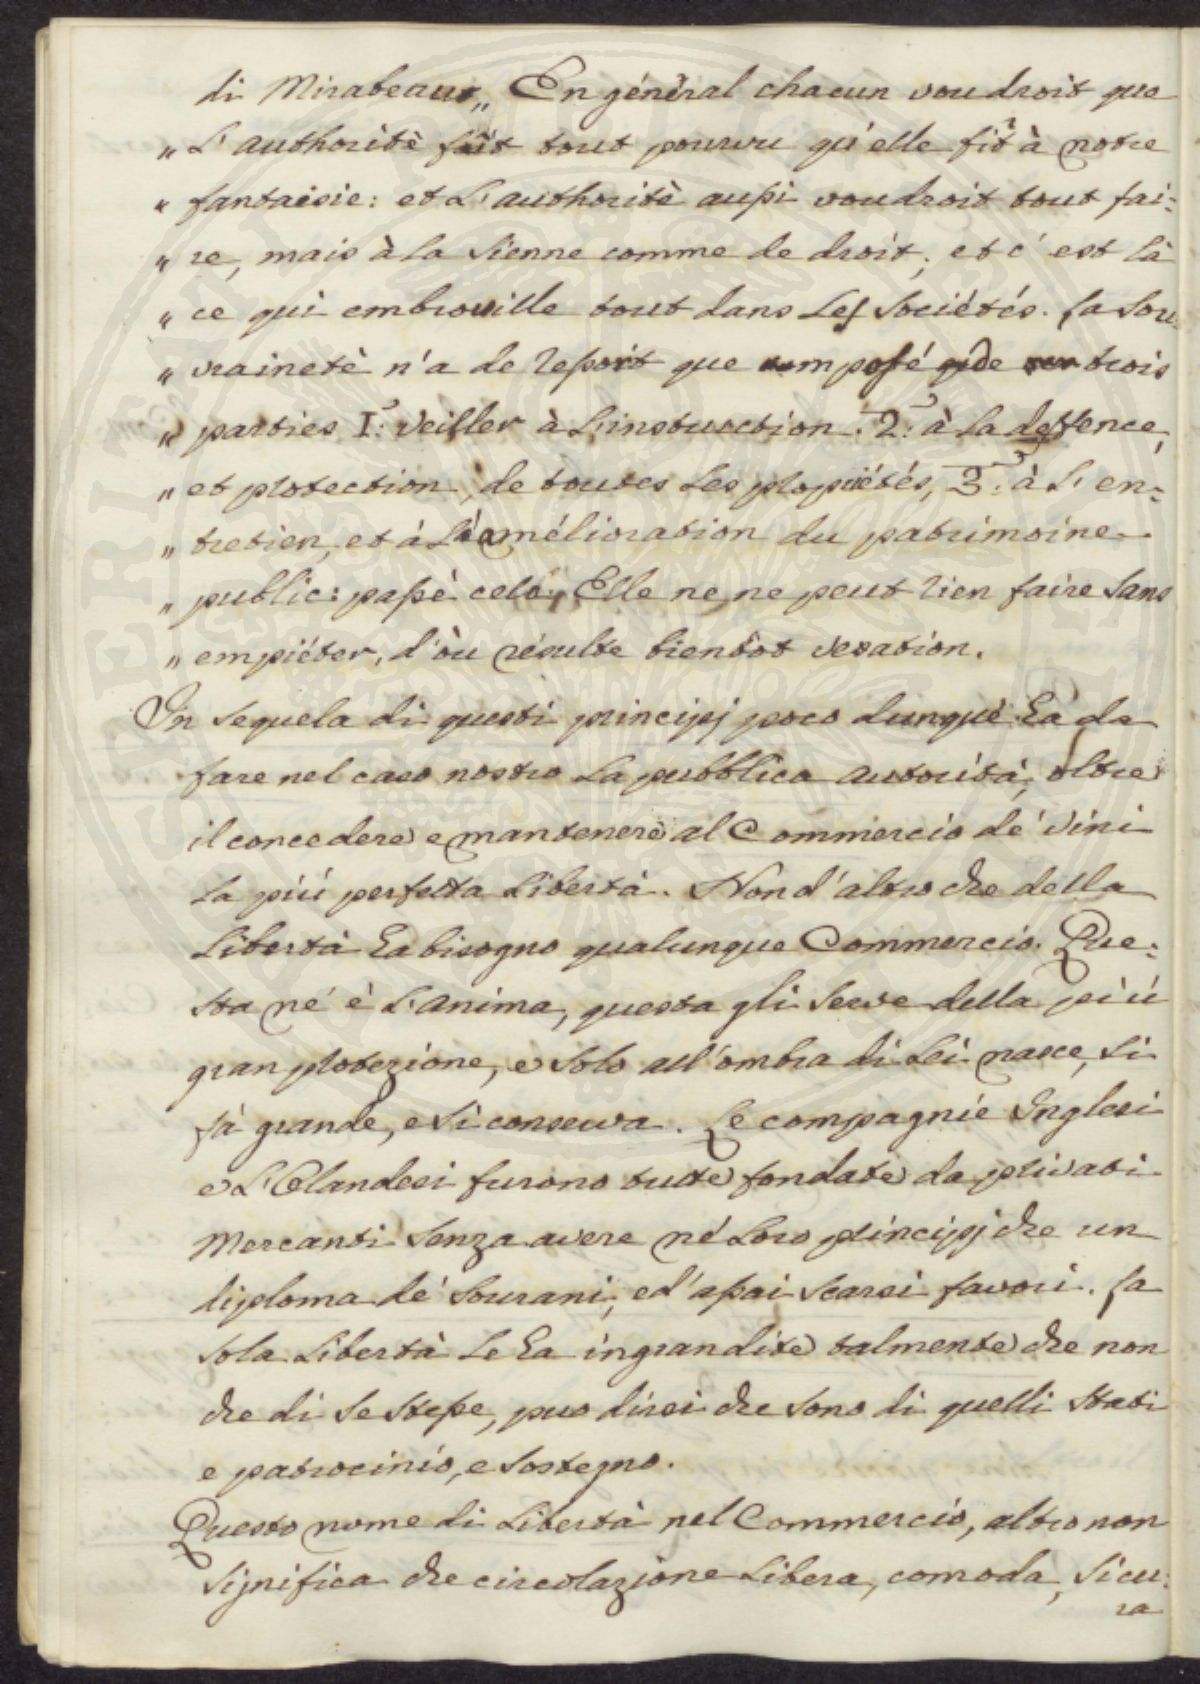 di Mirabeau „ En général chacun voudroit que
„ L'authoritè fût tout pourvu qu'elle fit à notre
„ fantaisie: et L'authoritè aussi voudroit tout fai-
„ re, mais à la sienne comme de droit; et c'est là
„ ce qui embrouille tout dans Les Sociétés. La Sou
„ vraineté n'a de Ressort que composé de trois
„ parties 1: veiller à L'instruction. 2: à la deffence,
„ et protection, de toutes Les propiétés, 3: à L'en-
„ tretien, et á L'amélioration du patrimoine
„ public: passè cela, Elle ne ne peut rien faire sans
„ empiéter, d'òu résulte bientôt vexation.
In sequela di questi principj poco dunque ha da
fare nel caso nostro La pubblica autorità, oltre
il concedere e mantenere al Commercio de' vini
La piú perfetta Libertà. Non d'altro che della
Libertà ha bisogno qualunque Commercio. Que-
sta né è L'anima, questa gli serve della piú
gran protezione, e solo all'ombra di Lei nasce, si
fà grande, e si conserva. Le compagnie Inglesi
e L'Olandesi furono tutte fondate da privati
Mercanti senza avere né Loro principj che un
diploma dé Sovrani, ed'assai scarsi favori. La
sola Libertà Le ha ingrandite talmente che non
che di se stesse, puo dirsi che sono di quelli Stati
e patrocinio, e sostegno.
Questo nome di Libertà nel Commercio, altro non
significa che circolazione Libera, comoda, sicu-
ra